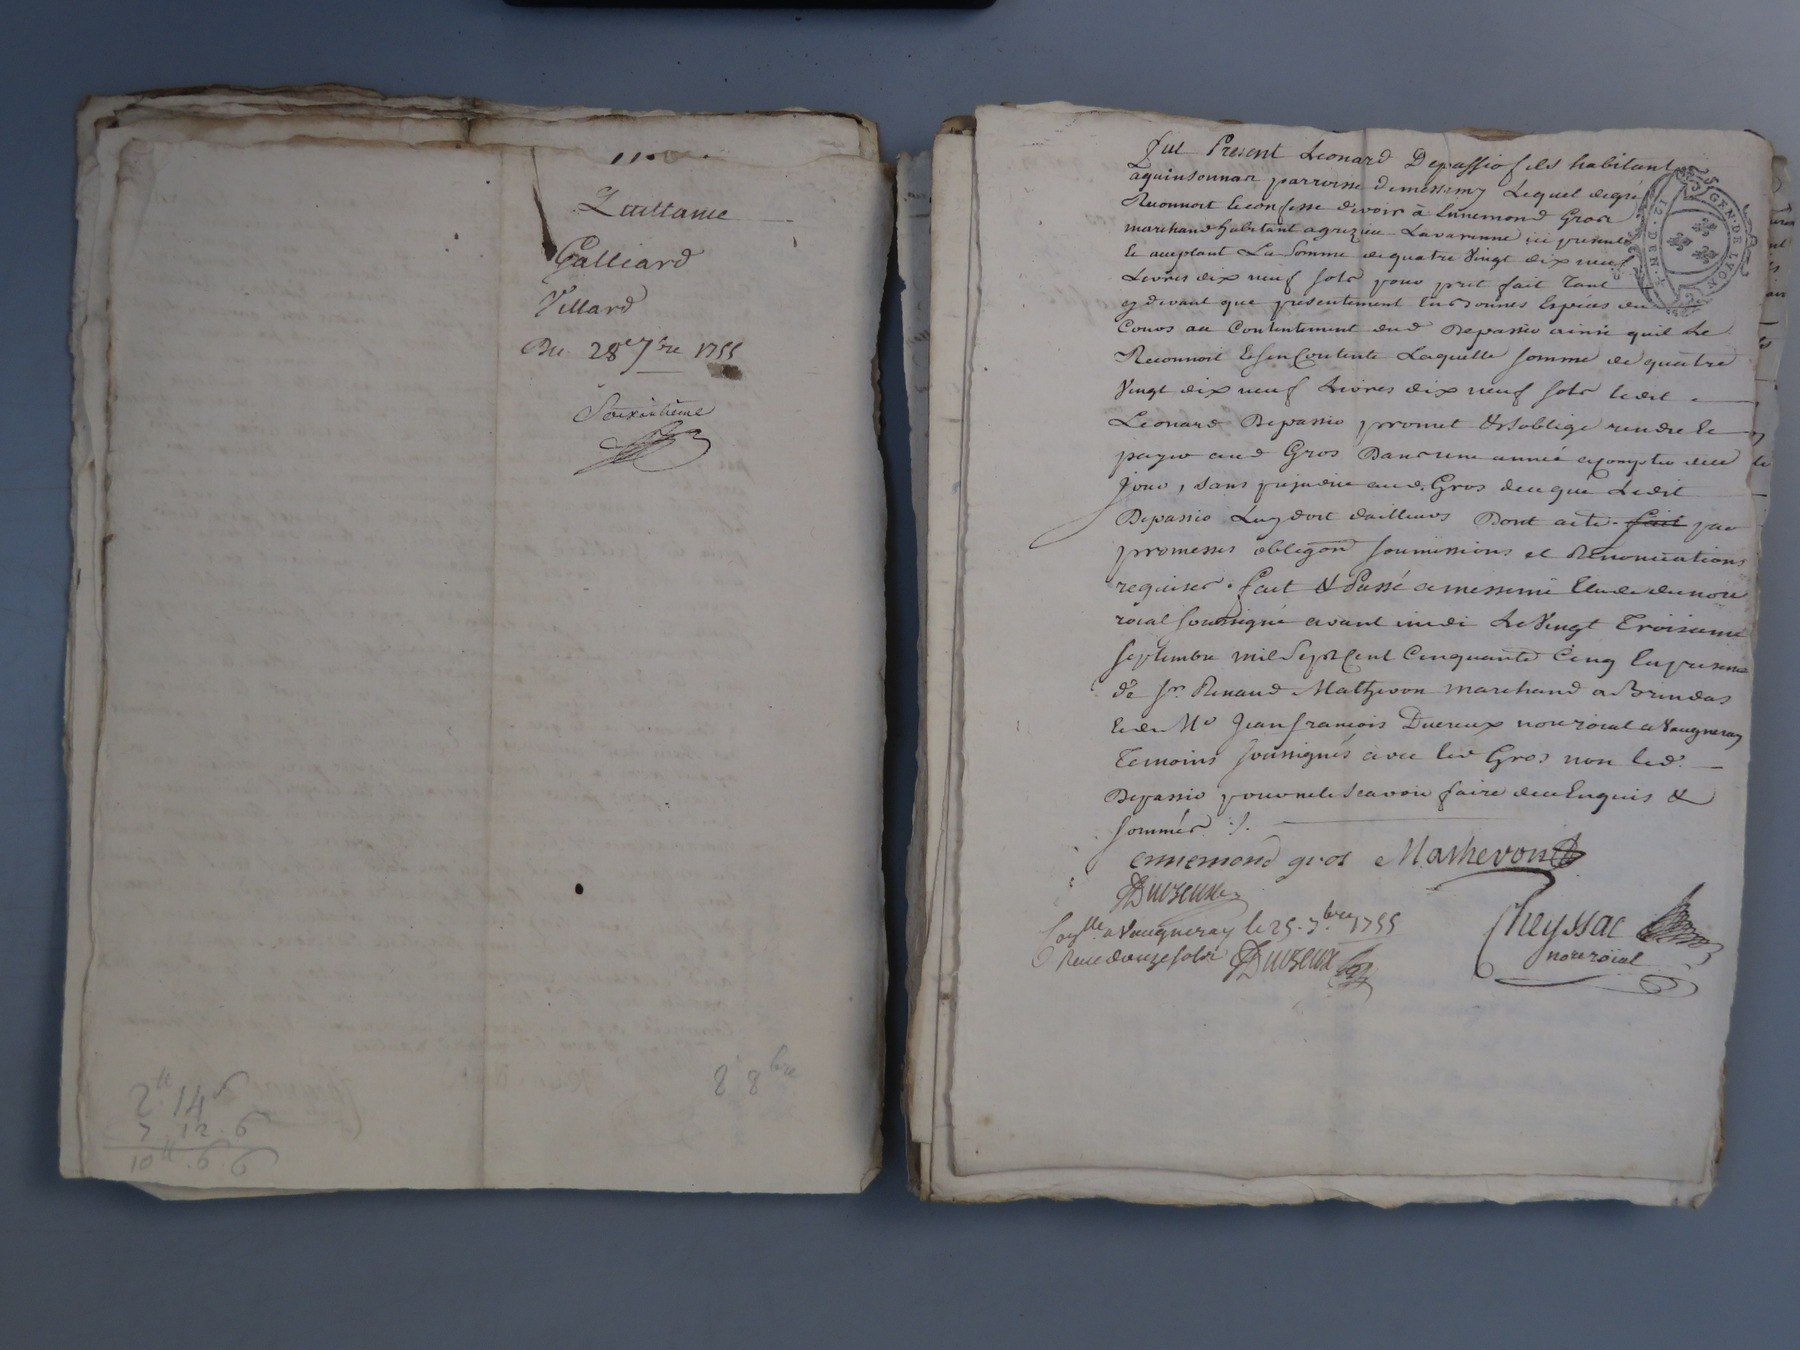 Quittance
Galliard
Villard
Du 28e 7bre 1755
Soixantieme
2ll 14 6
7 12. 6
10ll .6. 6
8 8bre
fut Present Leonard Depassio fils habitant
a quinsonnat parroisse de messimy Lequel de gré
Reconnoit & confesse devoir à Ennemond Gros
marchand habitant a grezieu Lavarenne ici present
& acceptant La Somme de quatre Vingt dix neuf
Livres dix neuf sols pour pret fait Tant
cy devant que presentement En Bonnes Espéces du
Cours au Contentement dud Depassio ainsi quil Le
Reconnoit & sen Contente Laquelle somme de quatre
Vingt dix neuf Livres dix neuf sols ledit
Leonard Depassio promet & soblige rendre &
payer aud Gros Dans une année a compter de ce
jour, sans prejudice aud. Gros de ce que Ledit
Depassio Luy doit dailleurs Dont acte. fait par
promesses obligaon soumissions et Renonciations
requises. fait & Passé a messimi Etude du nore
roial soussigné avant midi Le Vingt Troisieme
septembre mil Sept Cent Cinquante Cinq En presence
de sr. Renaud Mathevon marchand a Brindas
& de Me Jean francois Duvreux nore roial a Vaugneray
Temoins soussignés avec led Gros non led.
Depassio pour ne le Scavoir faire de ce Enquis &
sommés :/.
ennemond gros Mathevon
Du
a Vaugneray le 25. 7.bre 1755
Receu douze sols
Cheyssac
nore roial
GEN. DE LYON
12. DEN.